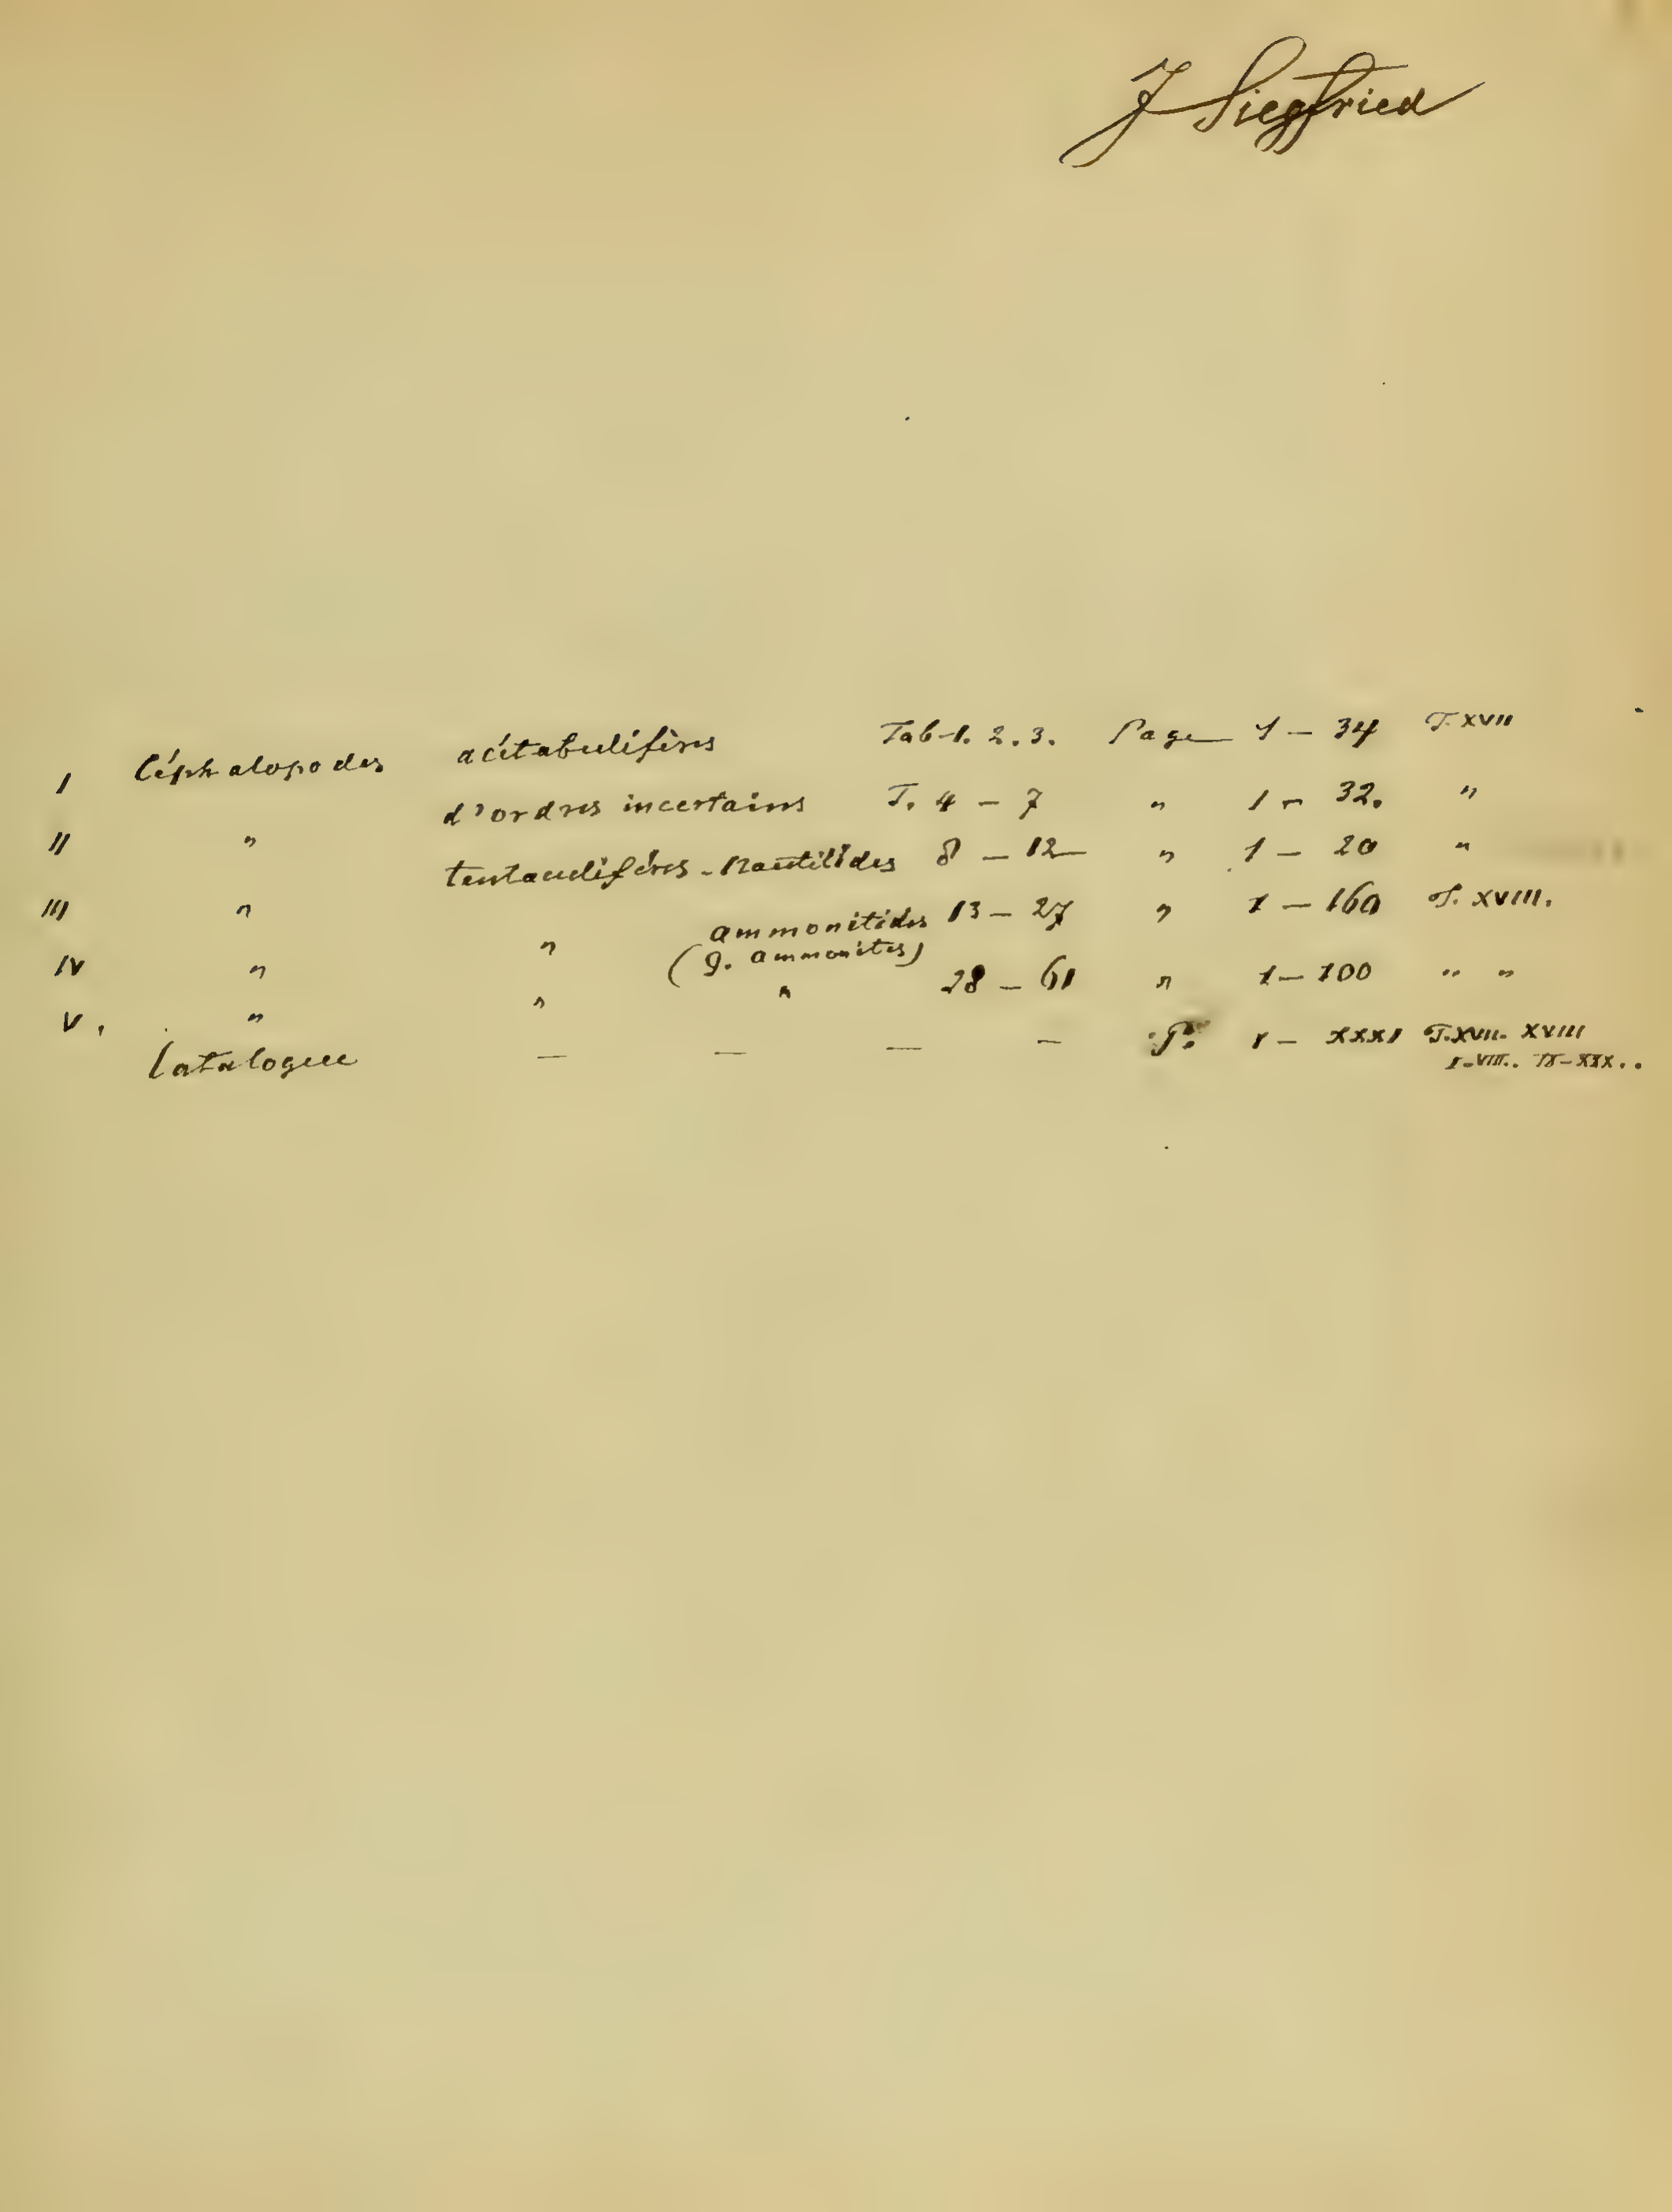 J Siegfried
I Céphalopodes acétabulifères Tab. 1. 2. 3. Page 1 – 34 T. XVII
II " d'ordres incertains T. 4 – 7 " 1 – 32. "
III " tentaculifères – Nautilides 8 – 12 " 1 – 20 "
IV " " ammonitides 13 – 27 " 1 – 160 T. XVIII.
(g. ammonites)
V. " " " 28 – 61 " 1 – 100 " "
Catalogue — — — — P. I – XXXI T. XVII. XVIII
I–VIII.. IX–XXX..